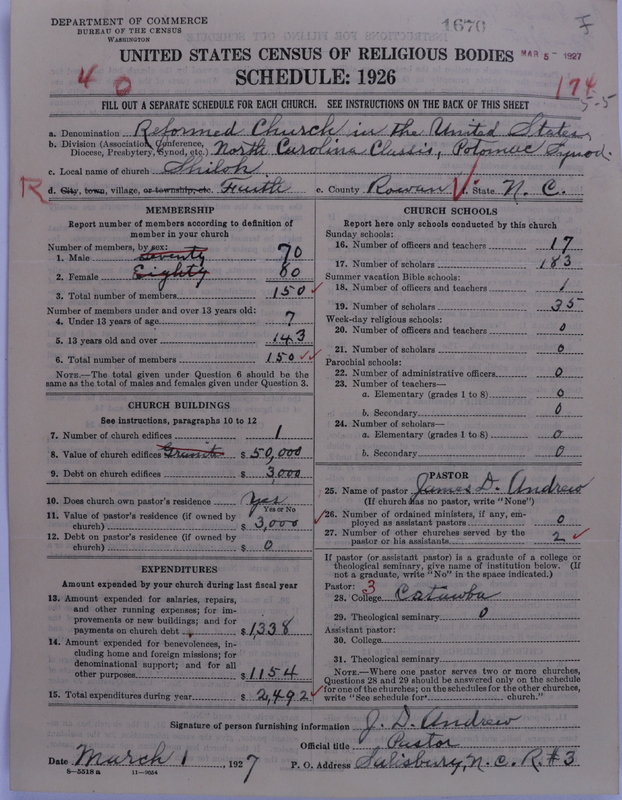 DEPARTMENT OF COMMERCE
BUREAU OF THE CENSUS
WASHINGTON
1670
UNITED STATES CENSUS OF RELIGIOUS BODIES
MAR 5 - 1927
SCHEDULE: 1926
4 0
174
5-5
FILL OUT A SEPARATE SCHEDULE FOR EACH CHURCH. SEE INSTRUCTIONS ON THE BACK OF THIS SHEET
a. Denomination Reformed Church in the United States
b. Division (Association, Conference, Diocese, Presbytery, Synod, etc.) North Carolina Classis, Potomac Synod.
c. Local name of church Shiloh
R
d. City, town, village, or township, etc. Faith e. County Rowan f. State N. C.
MEMBERSHIP
Report number of members according to definition of member in your church
Number of members, by sex:
1. Male Seventy 70
2. Female Eighty 80
3. Total number of members 150
Number of members under and over 13 years old:
4. Under 13 years of age 7
5. 13 years old and over 143
6. Total number of members 150
NOTE.—The total given under Question 6 should be the same as the total of males and females given under Question 3.
CHURCH BUILDINGS
See instructions, paragraphs 10 to 12
7. Number of church edifices 1
8. Value of church edifices Granite $ 50,000
9. Debt on church edifices $ 3,000
10. Does church own pastor's residence Yes
Yes or No
11. Value of pastor's residence (if owned by church) $ 3,000
12. Debt on pastor's residence (if owned by church) $ 0
EXPENDITURES
Amount expended by your church during last fiscal year
13. Amount expended for salaries, repairs, and other running expenses; for improvements or new building; and for payments on church debt $ 1,338
14. Amount expended for benevolences, including home and foreign missions; for denominational support; and for all other purposes $ 1154
15. Total expenditures during year $ 2,492
CHURCH SCHOOLS
Report here only schools conducted by this church
Sunday schools:
16. Number of officers and teachers 17
17. Number of scholars 183
Summer vacation Bible schools:
18. Number of officers and teachers 1
19. Number of scholars 35
Week-day religious schools:
20. Number of officers and teachers 0
21. Number of scholars 0
Parochial schools:
22. Number of administrative officers 0
23. Number of teachers—
a. Elementary (grades 1 to 8) 0
b. Secondary 0
24. Number of scholars—
a. Elementary (grades 1 to 8) 0
b. Secondary 0
PASTOR
25. Name of pastor James D. Andrew
(If church has no pastor, write "None")
26. Number of ordained ministers, if any, employed as assistant pastors 0
27. Number of other churches served by the pastor or his assistants 2
If pastor (or assistant pastor) is a graduate of a college or theological seminary, give name of institution below. (If not a graduate, write "No" in the space indicated.)
Pastor: 3
28. College Catawba
29. Theological seminary 0
Assistant pastor:
30. College
31. Theological seminary
NOTE.—Where one pastor serves two or more churches, Questions 28 and 29 should be answered only on the schedule for one of the churches; on the schedules for the other churches, write "See schedule for church."
Signature of person furnishing information J. D. Andrew
Official title Pastor
Date March 1, 1927 P. O. Address Salisbury, N. C. R. # 3
8—5518 a 11—9034